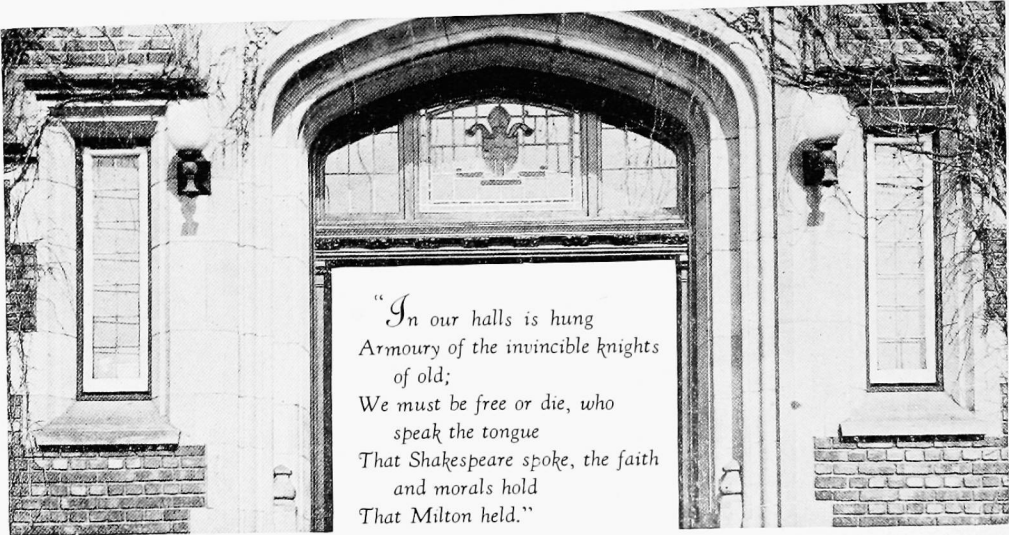 "In our halls is hung
Armoury of the invincible knights
of old;
We must be free or die, who
speak the tongue
That Shakespeare spoke, the faith
and morals hold
That Milton held."